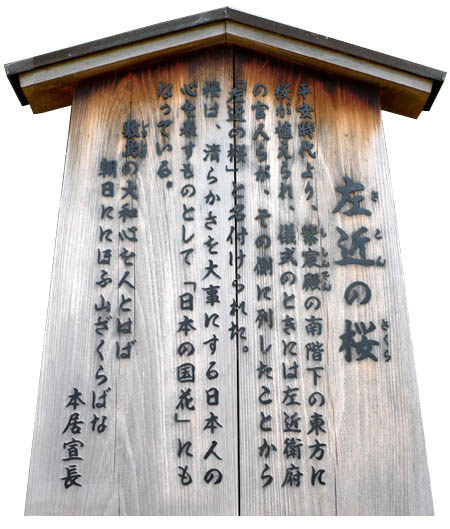 左近の桜
平安時代より、紫宸殿の南階下の東方に
桜が植えられ、儀式のときには左近衛府
の官人らが、その側に列したことから
「左近の桜」と名付けられた。
桜は、清らかさを大事にする日本人の
心を表すものとして「日本の国花」にも
なっている。
敷島の大和心を人とはば
朝日ににほふ山ざくらばな
本居宣長